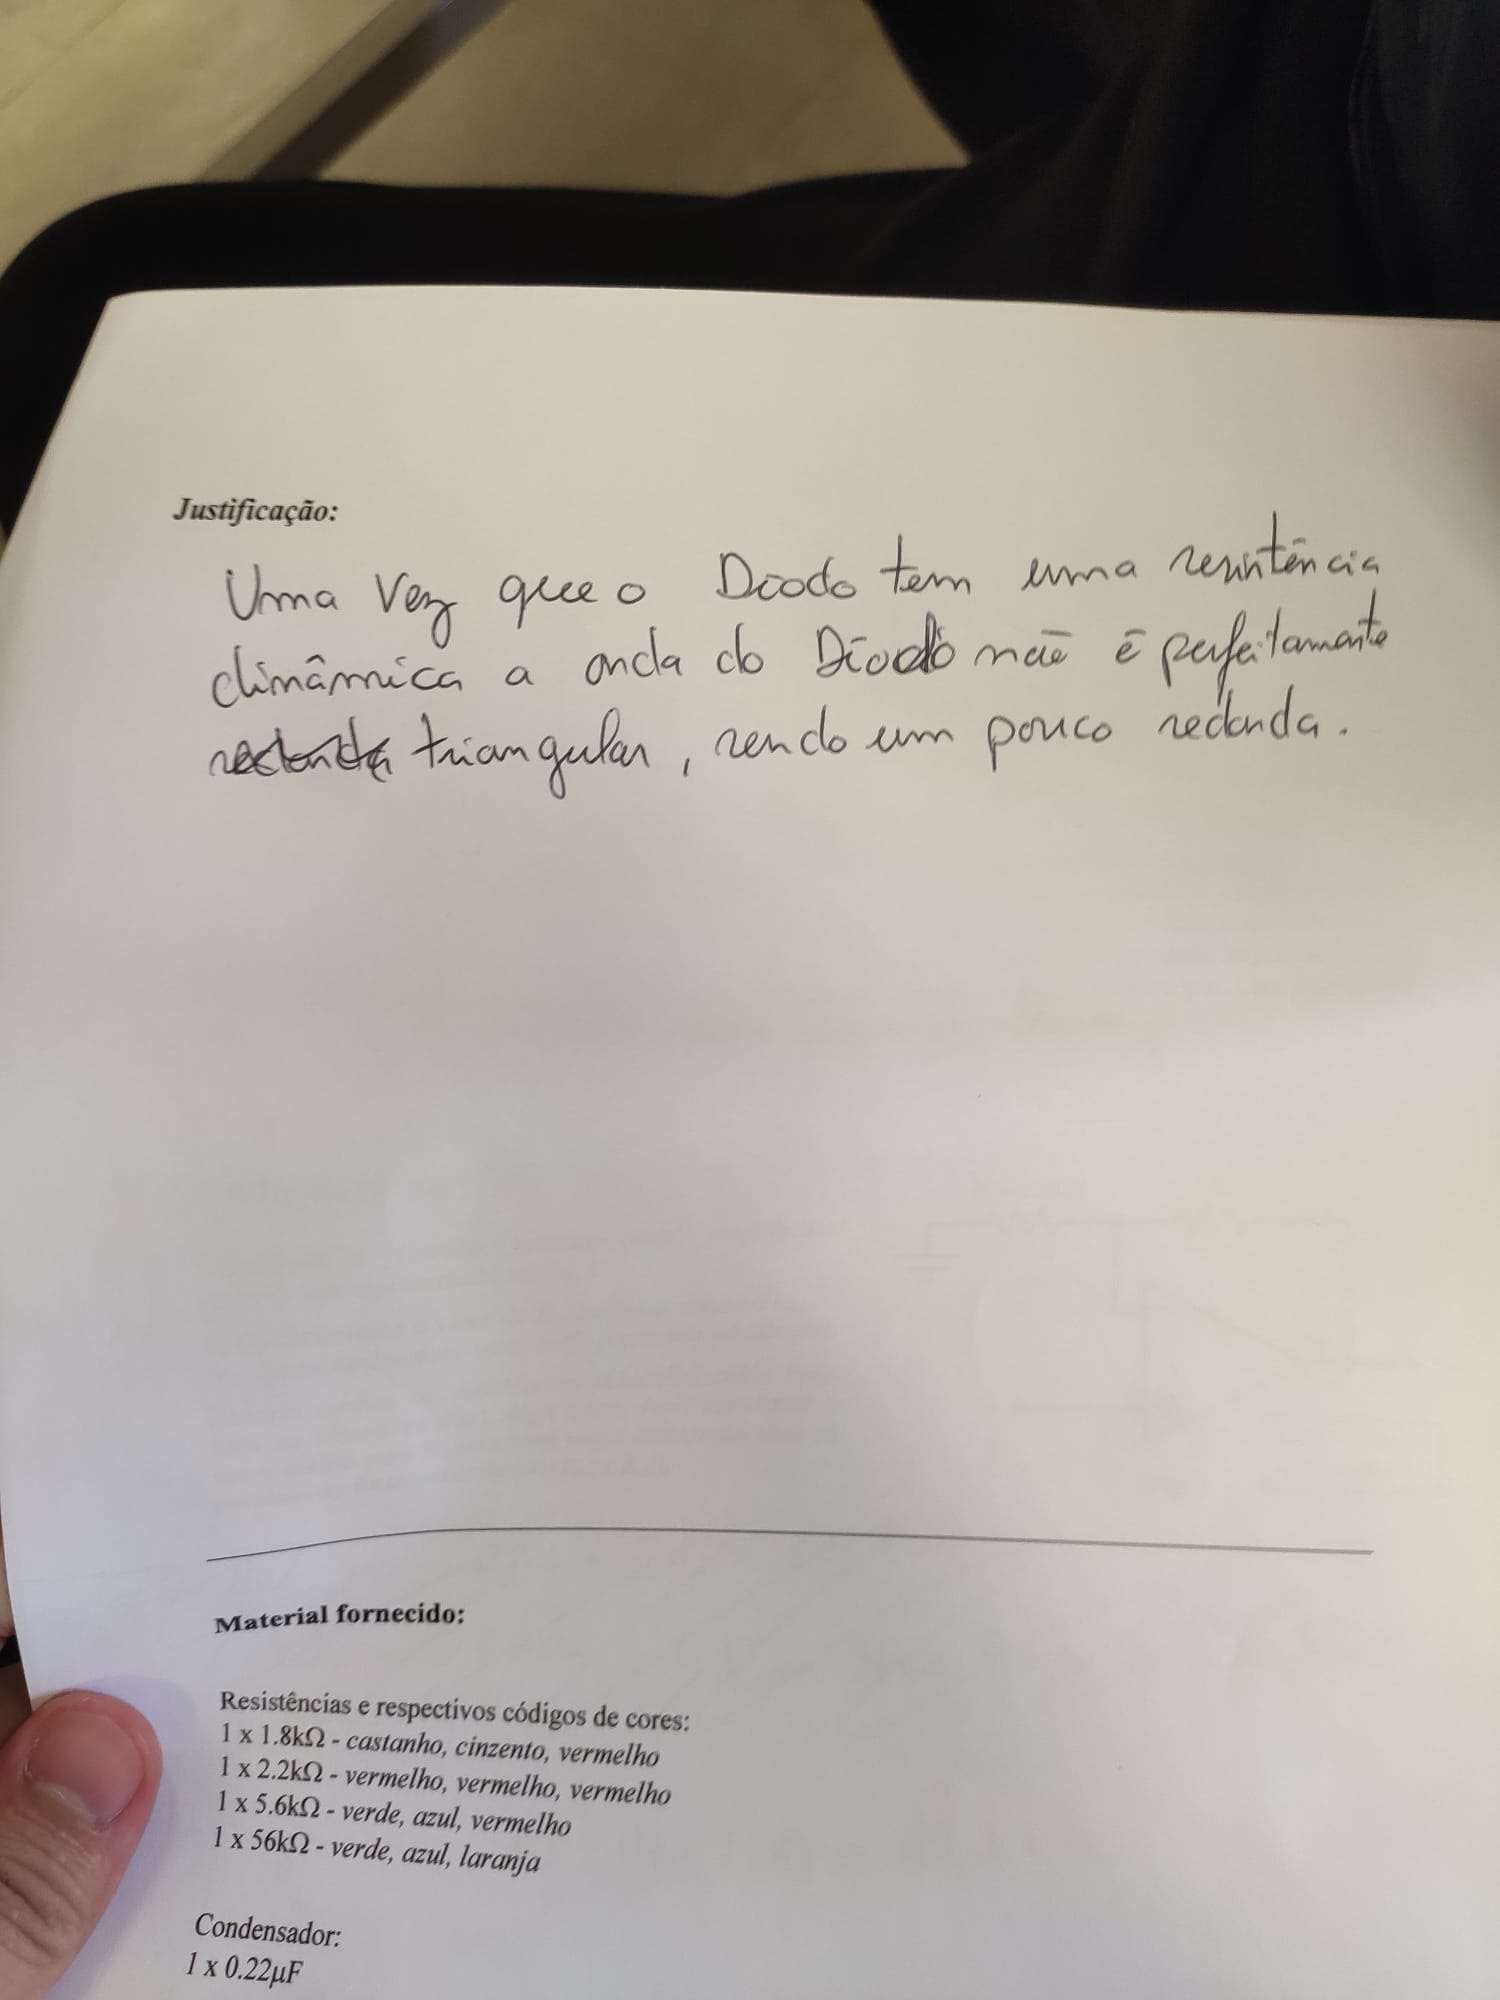 Justificação:
Uma vez que o Diodo tem uma resistência
dinâmica a onda do Díodo não é perfeitamente
redonda triangular, sendo um pouco redonda.
Material fornecido:
Resistências e respectivos códigos de cores:
1 x 1.8kΩ - castanho, cinzento, vermelho
1 x 2.2kΩ - vermelho, vermelho, vermelho
1 x 5.6kΩ - verde, azul, vermelho
1 x 56kΩ - verde, azul, laranja
Condensador:
1 x 0.22µF